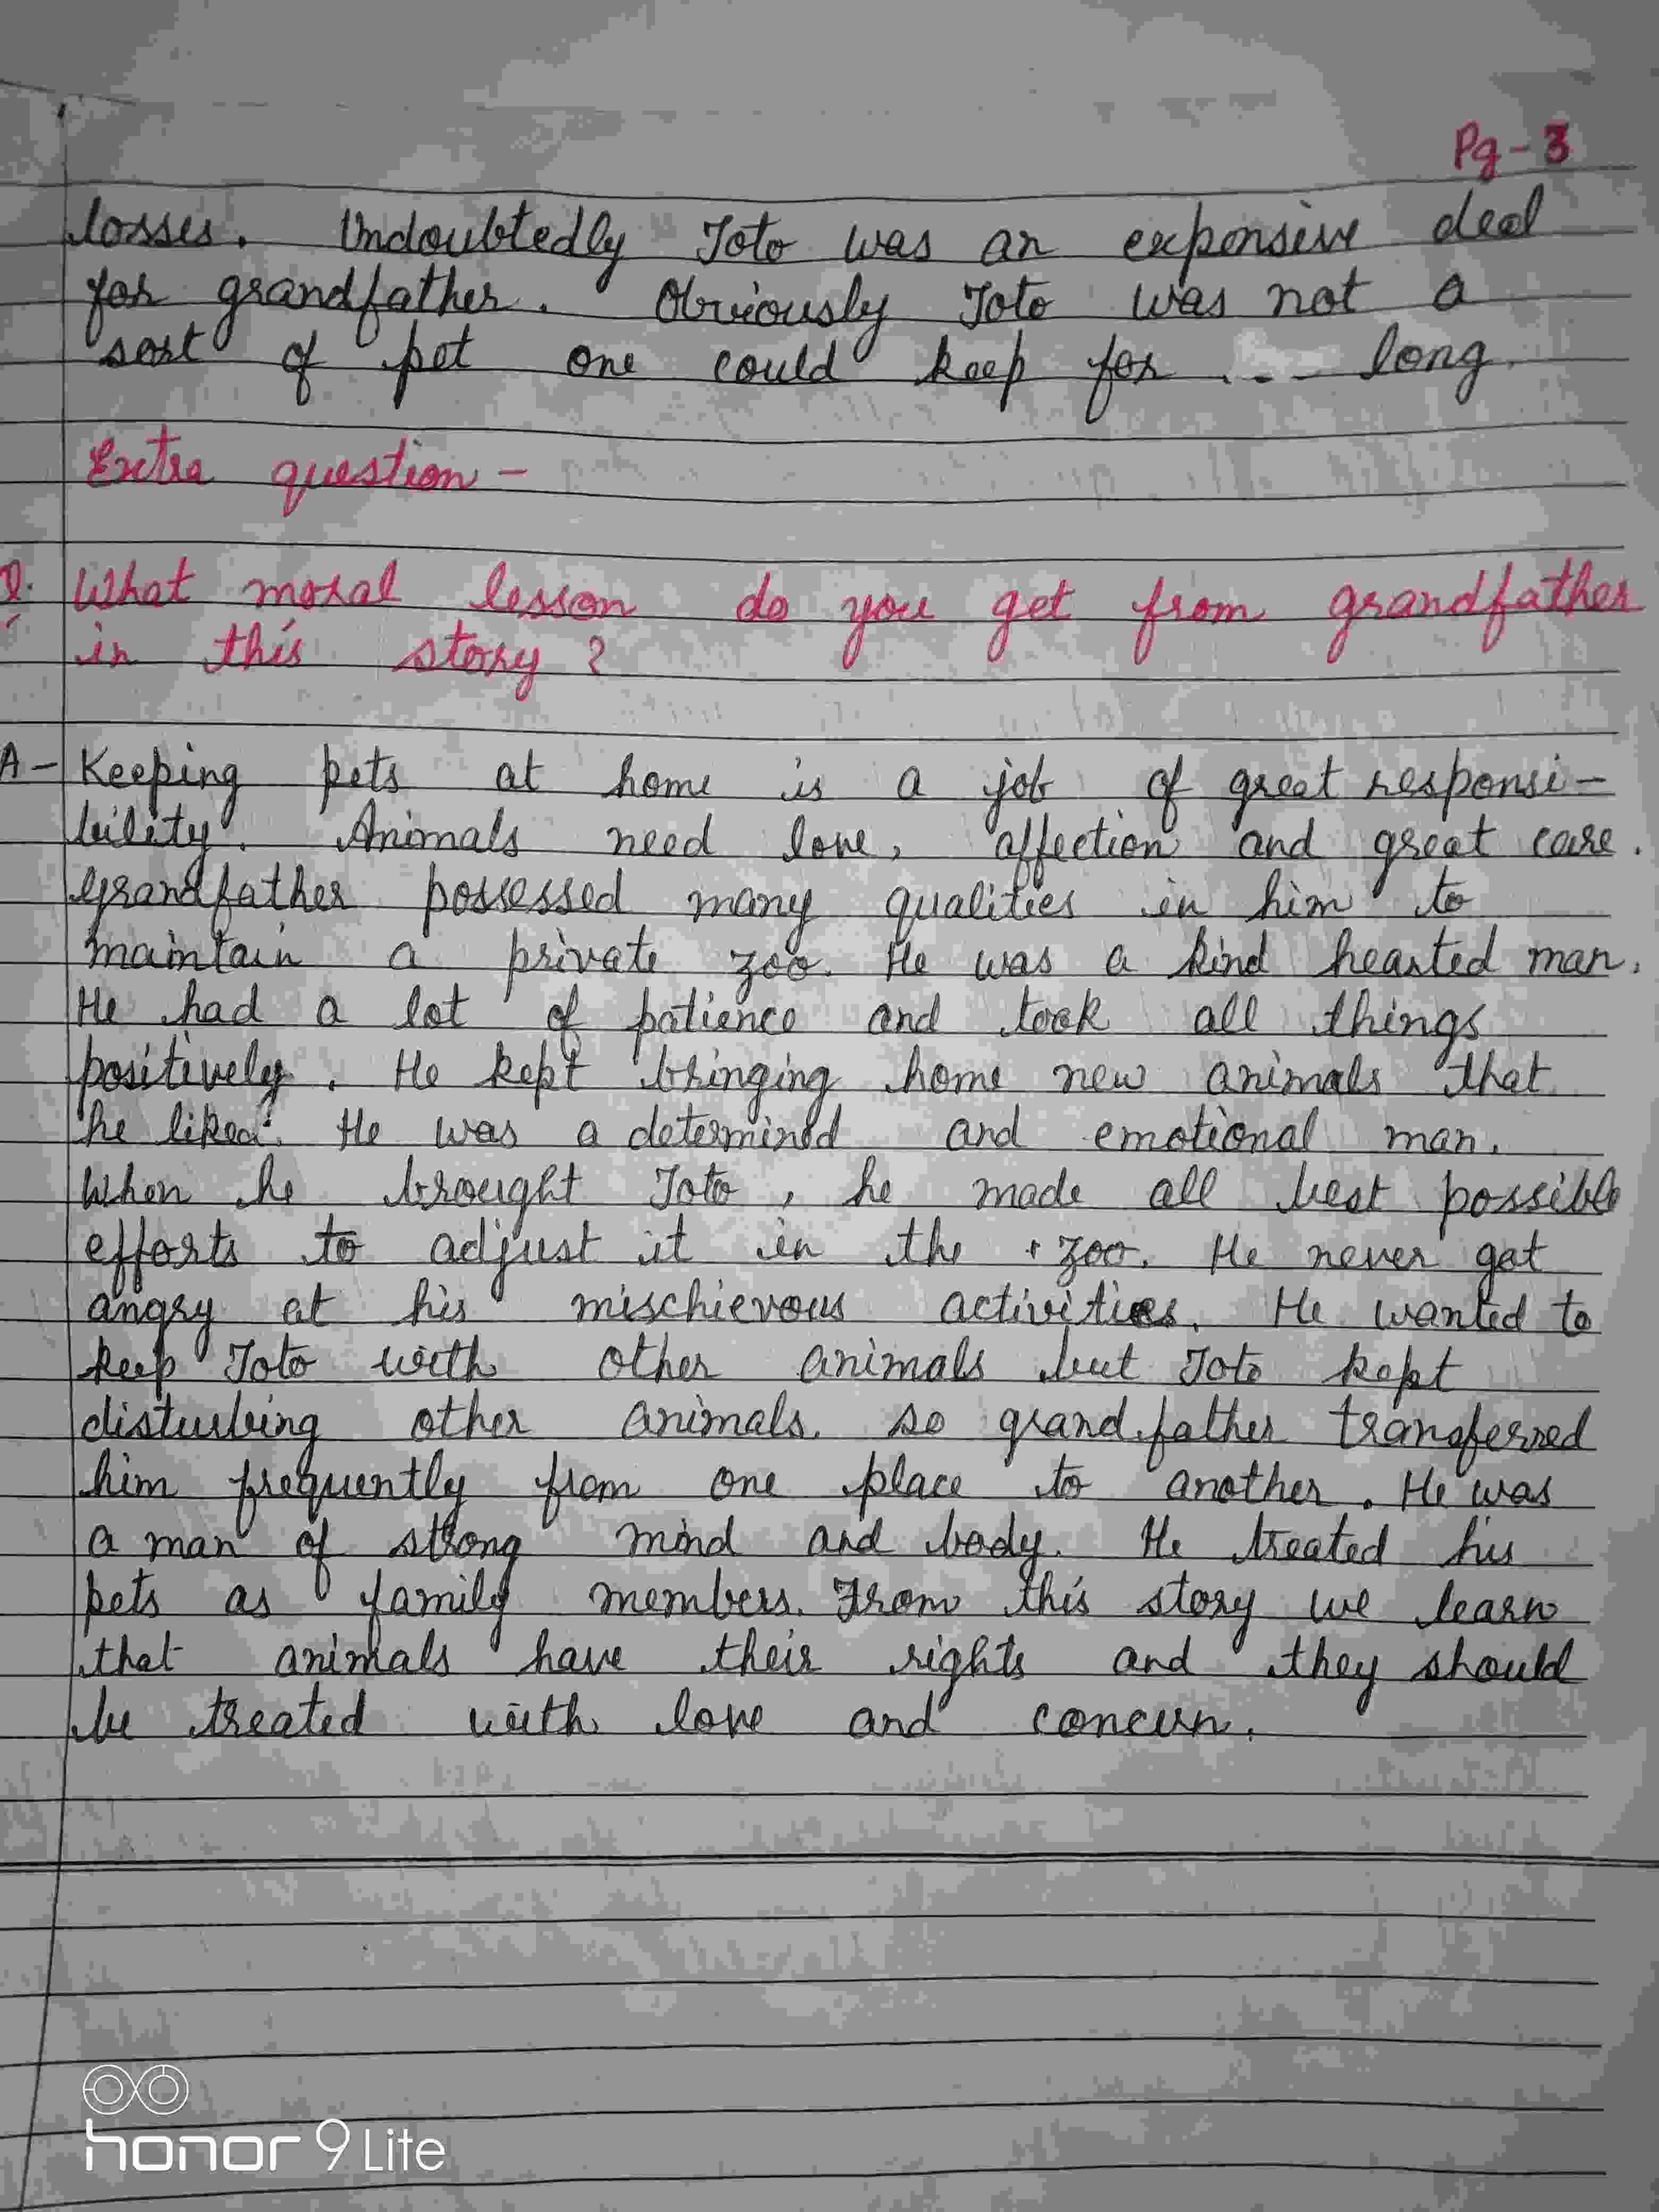 Pg - 3
losses. Undoubtedly Toto was an expensive deal
for grandfather. Obviously Toto was not a
sort of pet one could keep for ... long.
Extra question -
Q. What moral lesson do you get from grandfather
in this story?
A- Keeping pets at home is a job of great responsi-
bility. Animals need love, affection and great care.
Grandfather possessed many qualities in him to
maintain a private zoo. He was a kind hearted man.
He had a lot of patience and took all things
positively. He kept bringing home new animals that
he liked. He was a determined and emotional man.
When he brought Toto, he made all best possible
efforts to adjust it in the zoo. He never got
angry at his mischievous activities. He wanted to
keep Toto with other animals but Toto kept
disturbing other animals. so grandfather transferred
him frequently from one place to another. He was
a man of strong mind and body. He treated his
pets as family members. From this story we learn
that animals have their rights and they should
be treated with love and concern.
honor 9 Lite